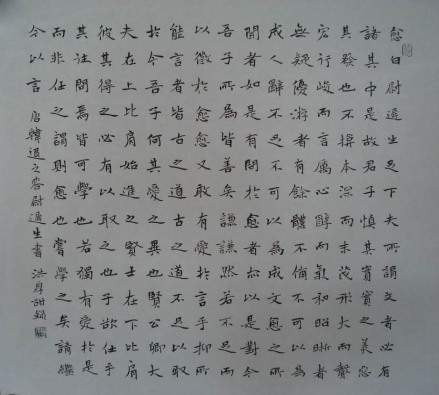 愈白尉遲生足下夫所謂文者必有
諸其中是故君子慎其實實之美惡
其發也不掩本深而末茂形大而聲
宏行峻而言厲心醇而氣和昭晰者
無疑優游者有餘體不備不可以為
成人辭不足不可以為成文愈之所
聞者如是有問於愈者亦以是對今
吾子所為皆善矣謙謙然若不足而
以徵於愈愈又敢有愛於言乎抑所
能言者皆古之道古之道不足以取
於今吾子何其愛之異也賢公卿大
夫在上比肩始進之賢士在下比肩
彼其得之必有以取之也子欲仕乎
其往問焉皆可學也若獨有愛於是
而非仕之謂則愈也嘗學之矣請繼
今以言 唐韓退之答尉遲生書 洪厚甜錄